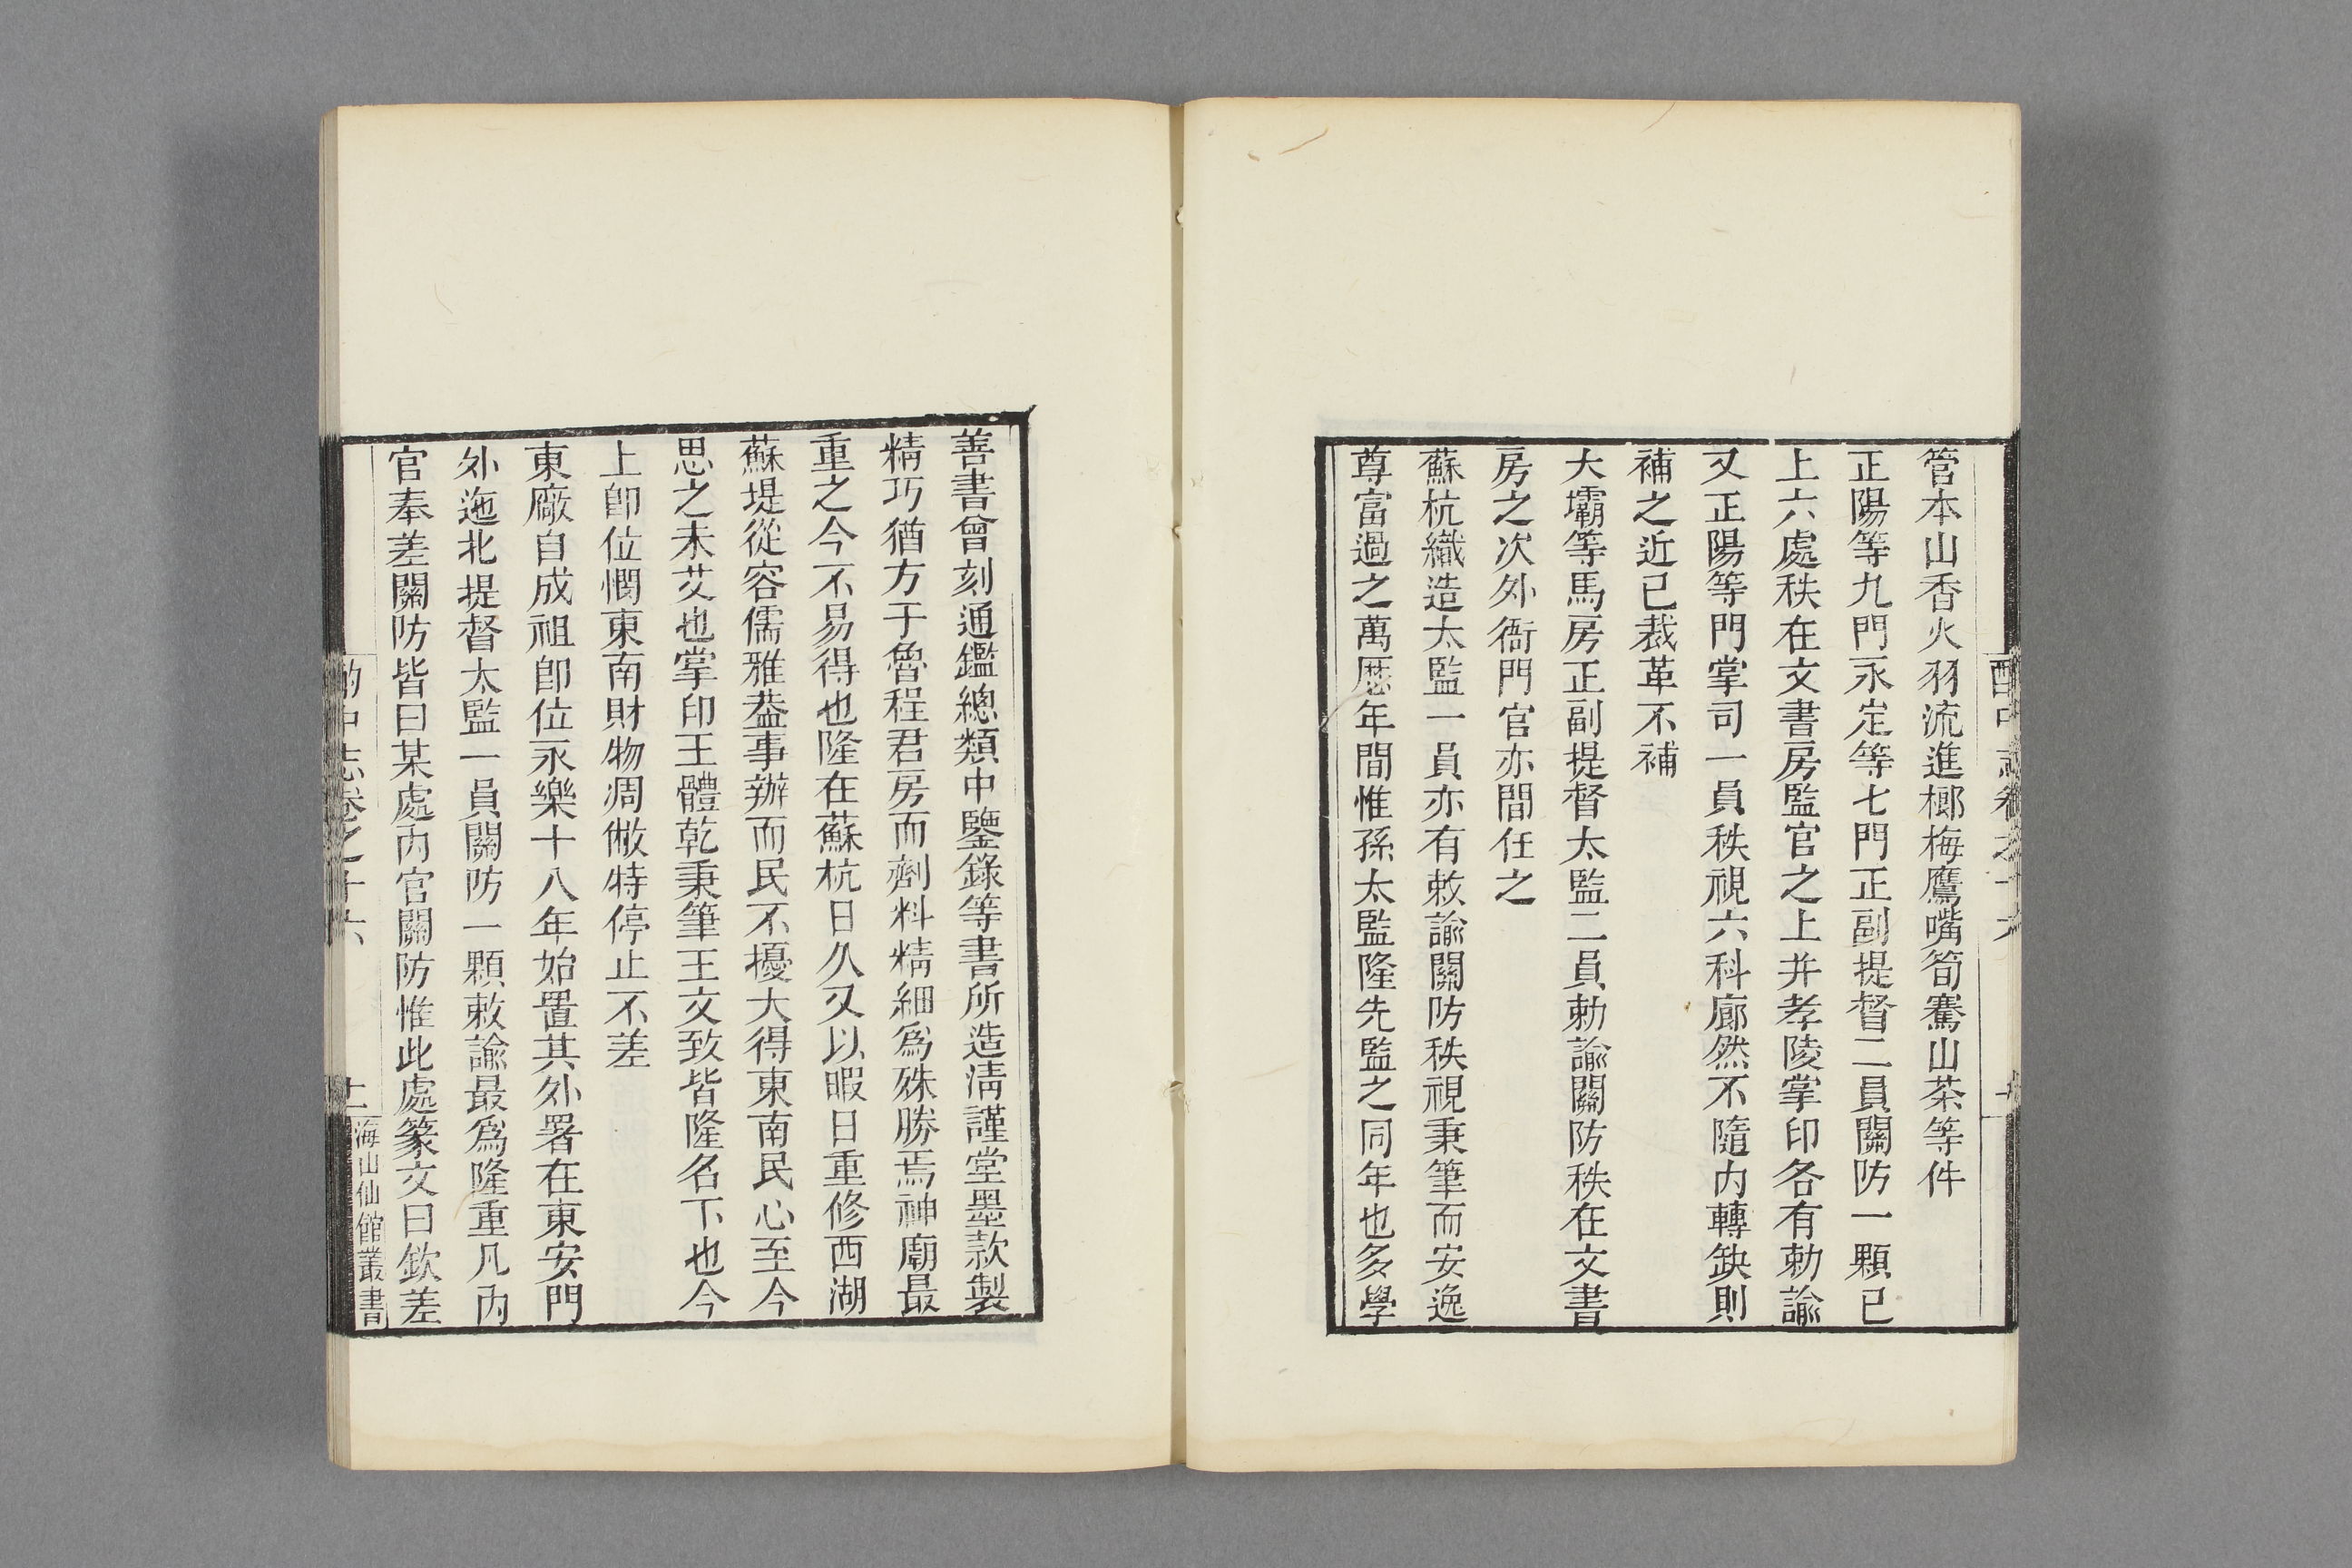 管本山香火羽流進榔梅鷹嘴筍騫山茶等件
正陽等九門永定等七門正副提督二員關防一顆已
上六處秩在文書房監官之上并孝陵掌印各有勅諭
又正陽等門掌司一員秩視六科廊然不隨内轉缺則
補之近已裁革不補
大壩等馬房正副提督太監二員勅諭關防秩在文書
房之次外衙門官亦間任之
蘇杭織造太監一員亦有敕諭關防秩視秉筆而安逸
尊富過之萬厯年間惟孫太監隆先監之同年也多學
善書曾刻通鑑總類中鑒錄等書所造清謹堂墨款製
精巧猶方于魯程君房而劑料精細爲殊勝焉神廟最
重之今不易得也隆在蘇杭日久又以暇日重修西湖
蘇堤從容儒雅葢事辦而民不擾大得東南民心至今
思之未艾也掌印王體乾秉筆王文致皆隆名下也今
上卽位憫東南財物凋敝特停止不差
東廠自成祖卽位永樂十八年始置其外署在東安門
外迤北提督太監一員關防一顆敕諭最爲隆重凡内
官奉差關防皆曰某處内官關防惟此處篆文曰欽差
酌中志卷之十六
海山仙館叢書